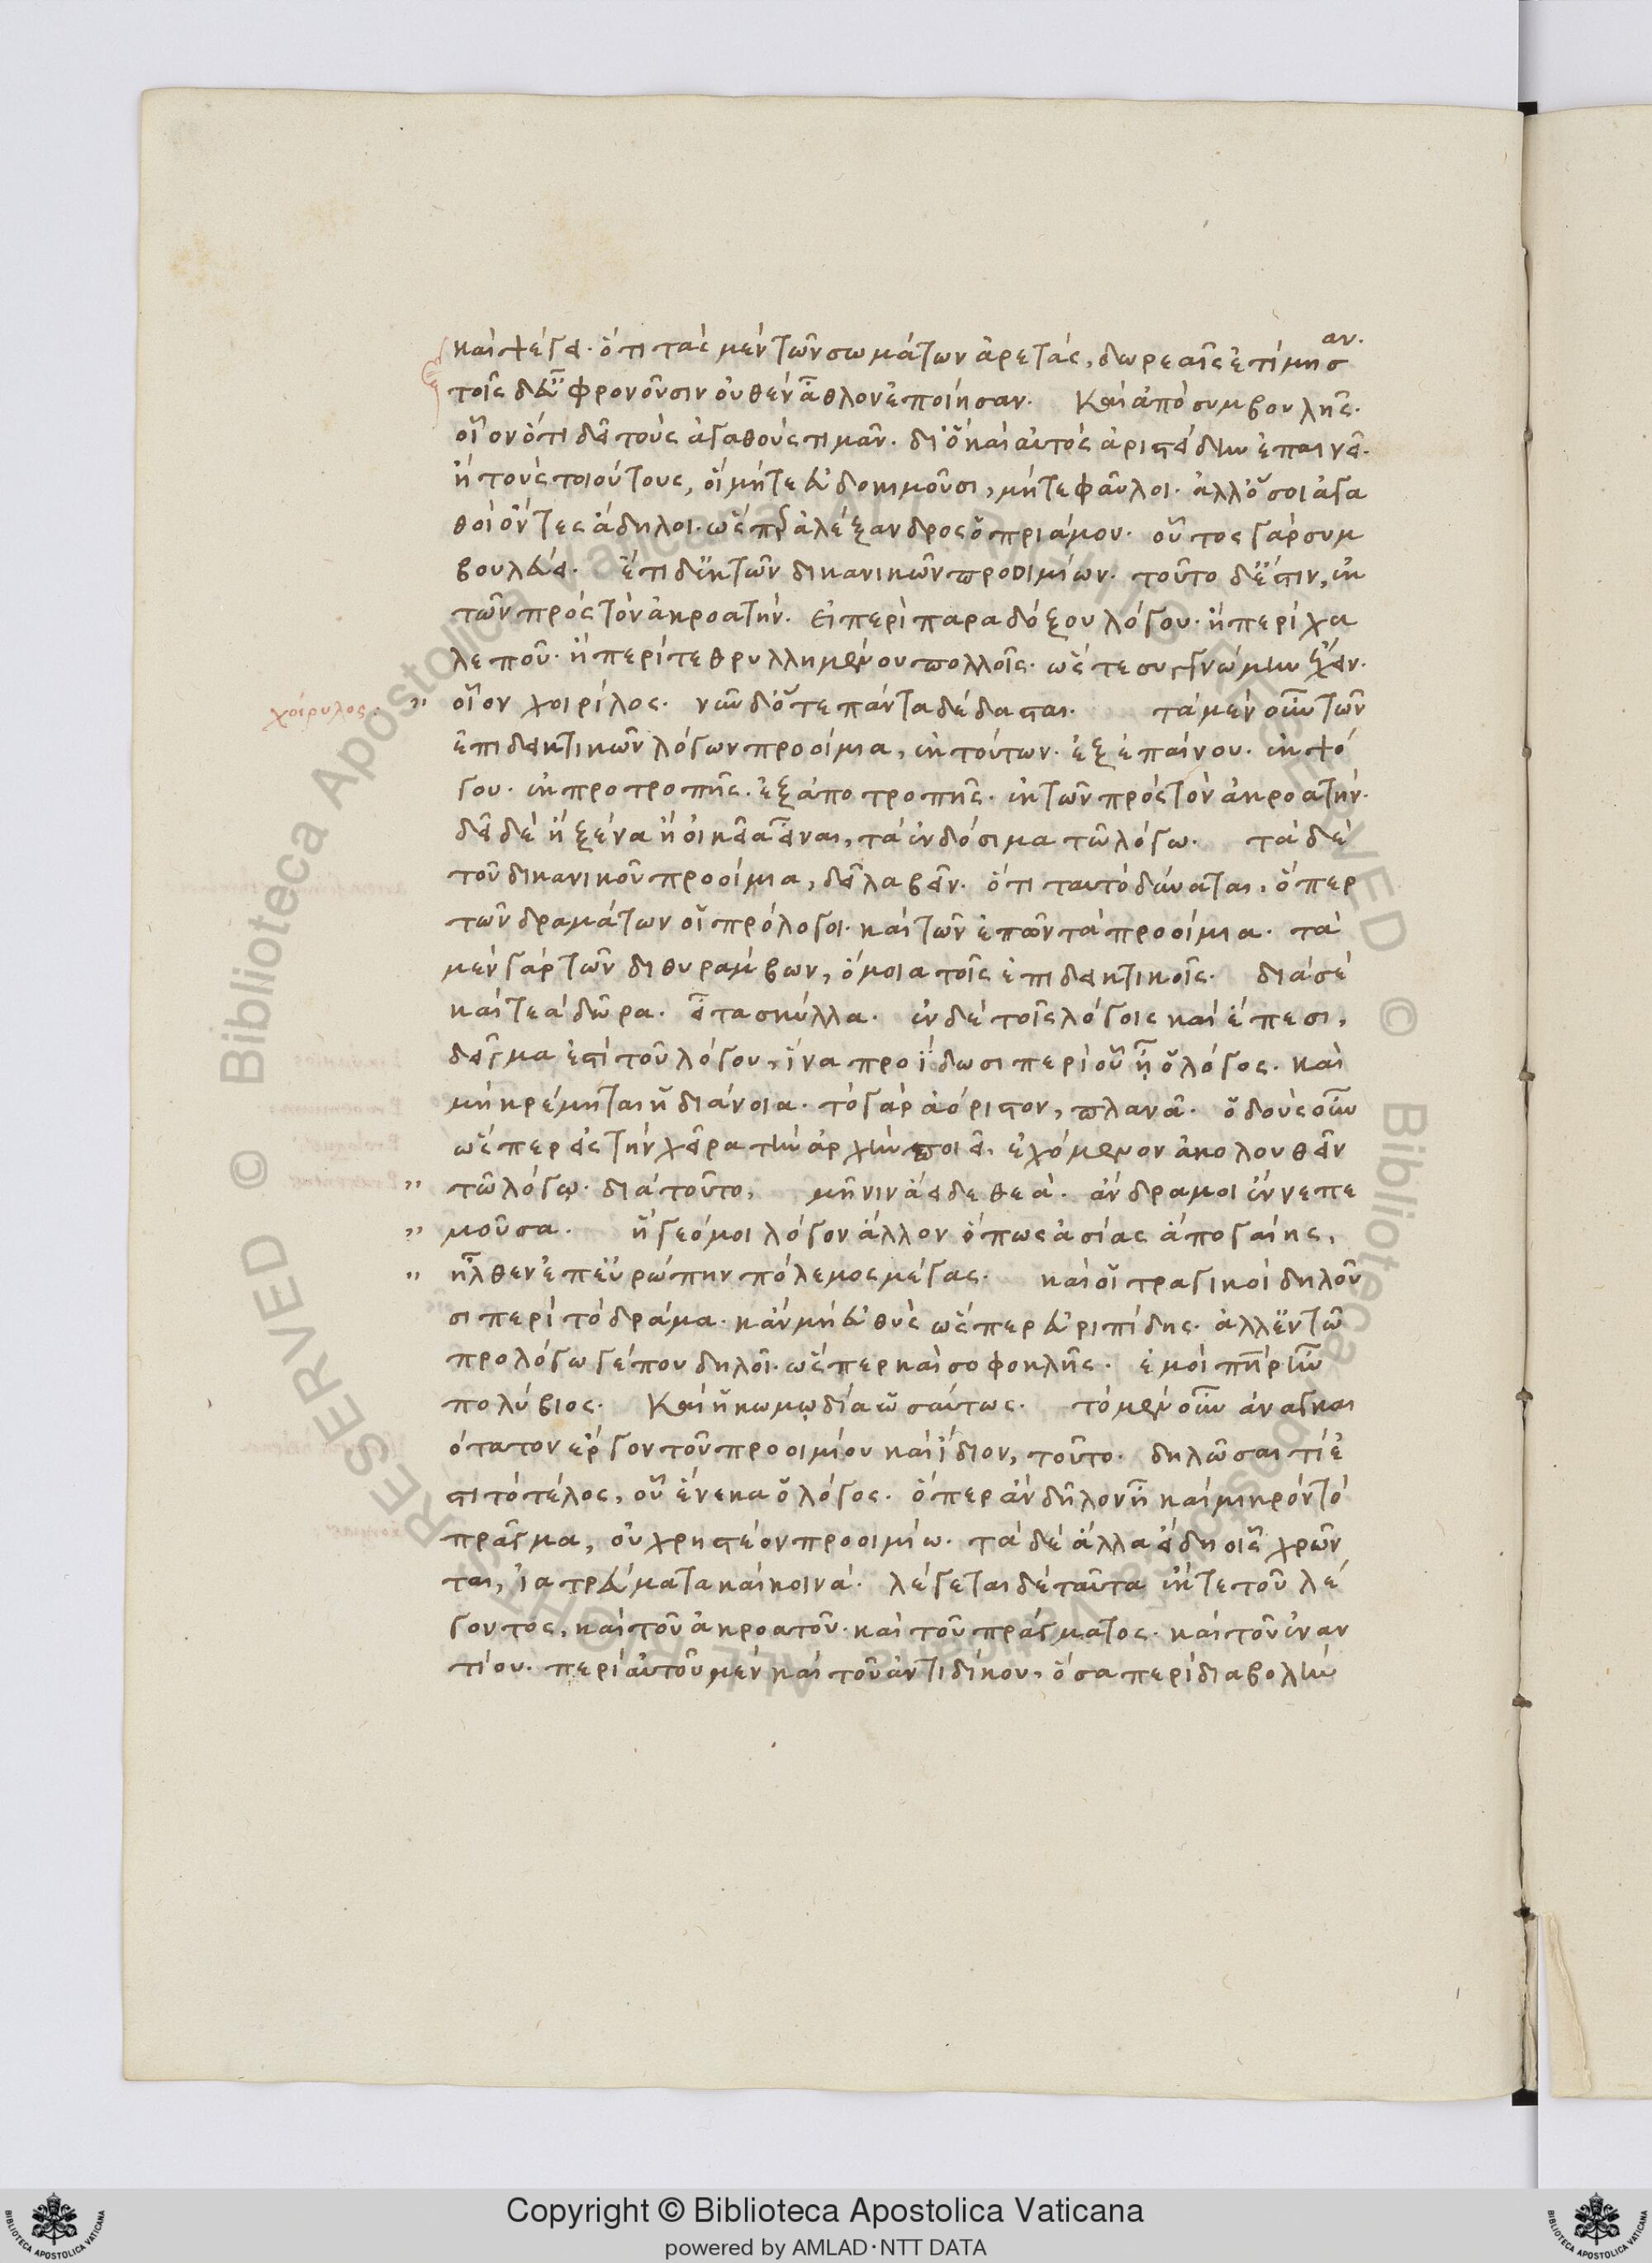 καὶ ψέγει. ὅτι τὰς μὲν τῶν σωμάτων ἀρετὰς, δωρεαῖς ἐτίμησαν.
τοῖς δ' εὖ φρονοῦσιν οὐθὲν ἆθλον ἐποίησαν. Καὶ ἀπὸ συμβουλῆς.
οἷον ὅτι δεῖ τοὺς ἀγαθοὺς τιμᾶν. διὸ καὶ αὐτὸς ἀριστείδην ἐπαινεῖ.
ἢ τοὺς τοιούτους, οἳ μήτε εὐδοκιμοῦσι, μήτε φαῦλοι. ἀλλ' ὅσοι ἀγα
θοὶ ὄντες ἄδηλοι. ὥσπερ ἀλέξανδρος ὁ πριάμου. οὗτος γὰρ συμ
βουλεύει. ἔτι δ' ἐκ τῶν δικανικῶν προοιμίων. τοῦτο δ' ἔστιν, ἐκ
τῶν πρὸς τὸν ἀκροατήν. εἰ περὶ παραδόξου λόγου. ἢ περὶ χα
λεποῦ. ἢ περὶ τεθρυλλημένου πολλοῖς. ὥστε συγγνώμην ἔχειν.
χοίρυλος. " οἷον χοιρίλος. νῦν δ' ὅτε πάντα δέδασται. τὰ μὲν οὖν τῶν
ἐπιδεικτικῶν λόγων προοίμια, ἐκ τούτων. ἐξ ἐπαίνου. ἐκ ψό
γου. ἐκ προτροπῆς. ἐξ ἀποτροπῆς. ἐκ τῶν πρὸς τὸν ἀκροατήν.
δεῖ δὲ ἢ ξένα ἢ οἰκεῖα εἶναι, τὰ ἐνδόσιμα τῶ λόγω. τὰ δὲ
τοῦ δικανικοῦ προοίμια, δεῖ λαβεῖν. ὅτι ταυτὸ δύναται, ὅπερ
τῶν δραμάτων οἱ πρόλογοι. καὶ τῶν ἐπῶν τὰ προοίμια. τὰ
μὲν γὰρ τῶν διθυράμβων, ὅμοια τοῖς ἐπιδεικτικοῖς. διὰ σὲ
καὶ τεὰ δῶρα. εἶτα σκύλλα. ἐν δὲ τοῖς λόγοις καὶ ἔπεσι,
δεῖγμα ἐστὶ τοῦ λόγου, ἵνα προΐδωσι περὶ οὗ ᾖ ὁ λόγος. καὶ
μὴ κρέμηται ἡ διάνοια. τὸ γὰρ ἀόριστον, πλανᾶ. ὁ δοὺς οὖν
ὥσπερ εἰς τὴν χεῖρα τὴν ἀρχὴν ποιεῖ. ἐχόμενον ἀκολουθεῖν
" τῶ λόγῳ. διὰ τοῦτο, μῆνιν ἄειδε θεά. ἄνδρα μοι ἔννεπε
" μοῦσα. ἥγεό μοι λόγον ἄλλον ὅπως ἀσίας ἀπὸ γαίης,
" ἦλθεν ἐπ' εὐρώπην πόλεμος μέγας. καὶ οἱ τραγικοὶ δηλοῦ
σι περὶ τὸ δράμα. κἂν μὴ εὐθὺς ὥσπερ εὐριπίδης. ἀλλ' ἐν τῶ
προλόγω γέ που δηλοῖ. ὥσπερ καὶ σοφοκλῆς. ἐμοὶ πατὴρ ἦν
πολύβιος. Καὶ ἡ κωμῳδία ὡσαύτως. τὸ μὲν οὖν ἀναγκαι
ότατον ἔργον τοῦ προοιμίου καὶ ἴδιον, τοῦτο. δηλῶσαι τί ἐ
στι τὸ τέλος, οὗ ἕνεκα ὁ λόγος. ὅπερ ἂν δῆλον ᾖ καὶ μικρὸν τὸ
πρᾶγμα, οὐ χρηστέον προοιμίω. τὰ δὲ ἄλλα εἴδη οἷς χρῶν
ται, ἰατρεύματα καὶ κοινά. λέγεται δὲ ταῦτα ἔκ τε τοῦ λέ
γοντος, καὶ τοῦ ἀκροατοῦ. καὶ τοῦ πράγματος. καὶ τοῦ ἐναν
τίου. περὶ αὐτοῦ μὲν καὶ τοῦ ἀντιδίκου, ὅσα περὶ διαβολὴν
Copyright © Biblioteca Apostolica Vaticana
powered by AMLAD·NTT DATA